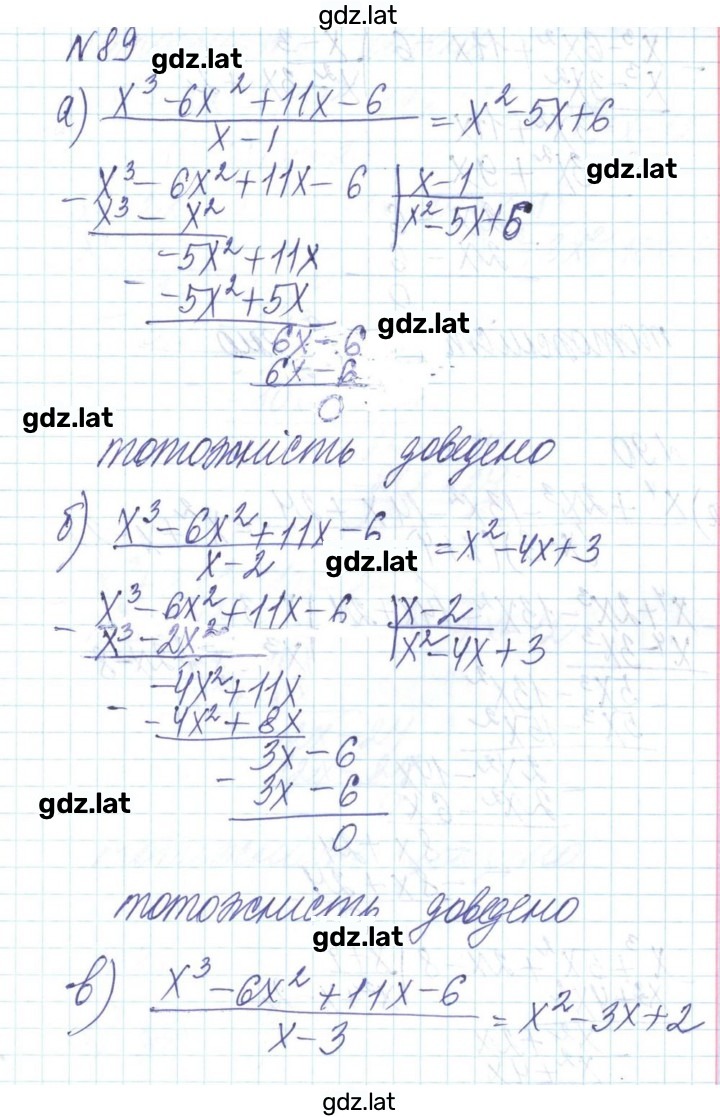 gdz.lat
N 89
gdz.lat
а) (x³ - 6x² + 11x - 6)/(x - 1) = x² - 5x + 6
gdz.lat
- x³ - 6x² + 11x - 6 | x - 1
x³ - x² | x² - 5x + 6
-5x² + 11x
- -5x² + 5x
gdz.lat
6x - 6
- 6x - 6
0
gdz.lat
тотожність доведено
б) (x³ - 6x² + 11x - 6)/(x - 2) = x² - 4x + 3
gdz.lat
- x³ - 6x² + 11x - 6 | x - 2
x³ - 2x² | x² - 4x + 3
-4x² + 11x
- -4x² + 8x
3x - 6
- 3x - 6
gdz.lat
0
тотожність доведено
gdz.lat
в) (x³ - 6x² + 11x - 6)/(x - 3) = x² - 3x + 2
gdz.lat